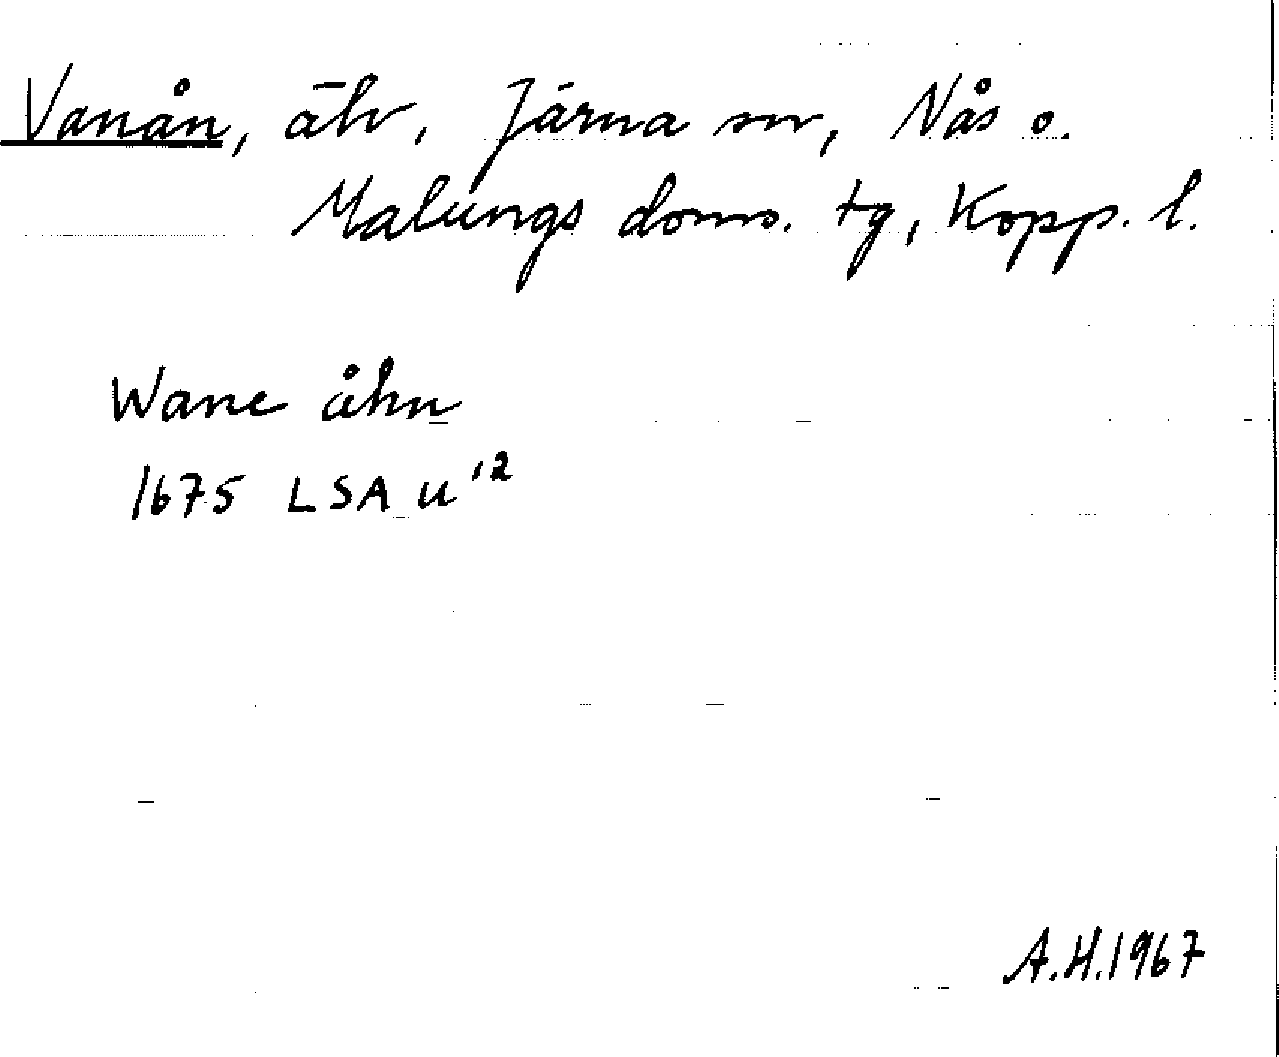 Vanån, älv, Järna sn, Nås o.
Malungs doms. tg, Kopp. l.
Wane åhn
1675 LSA U'2
A.H.1967